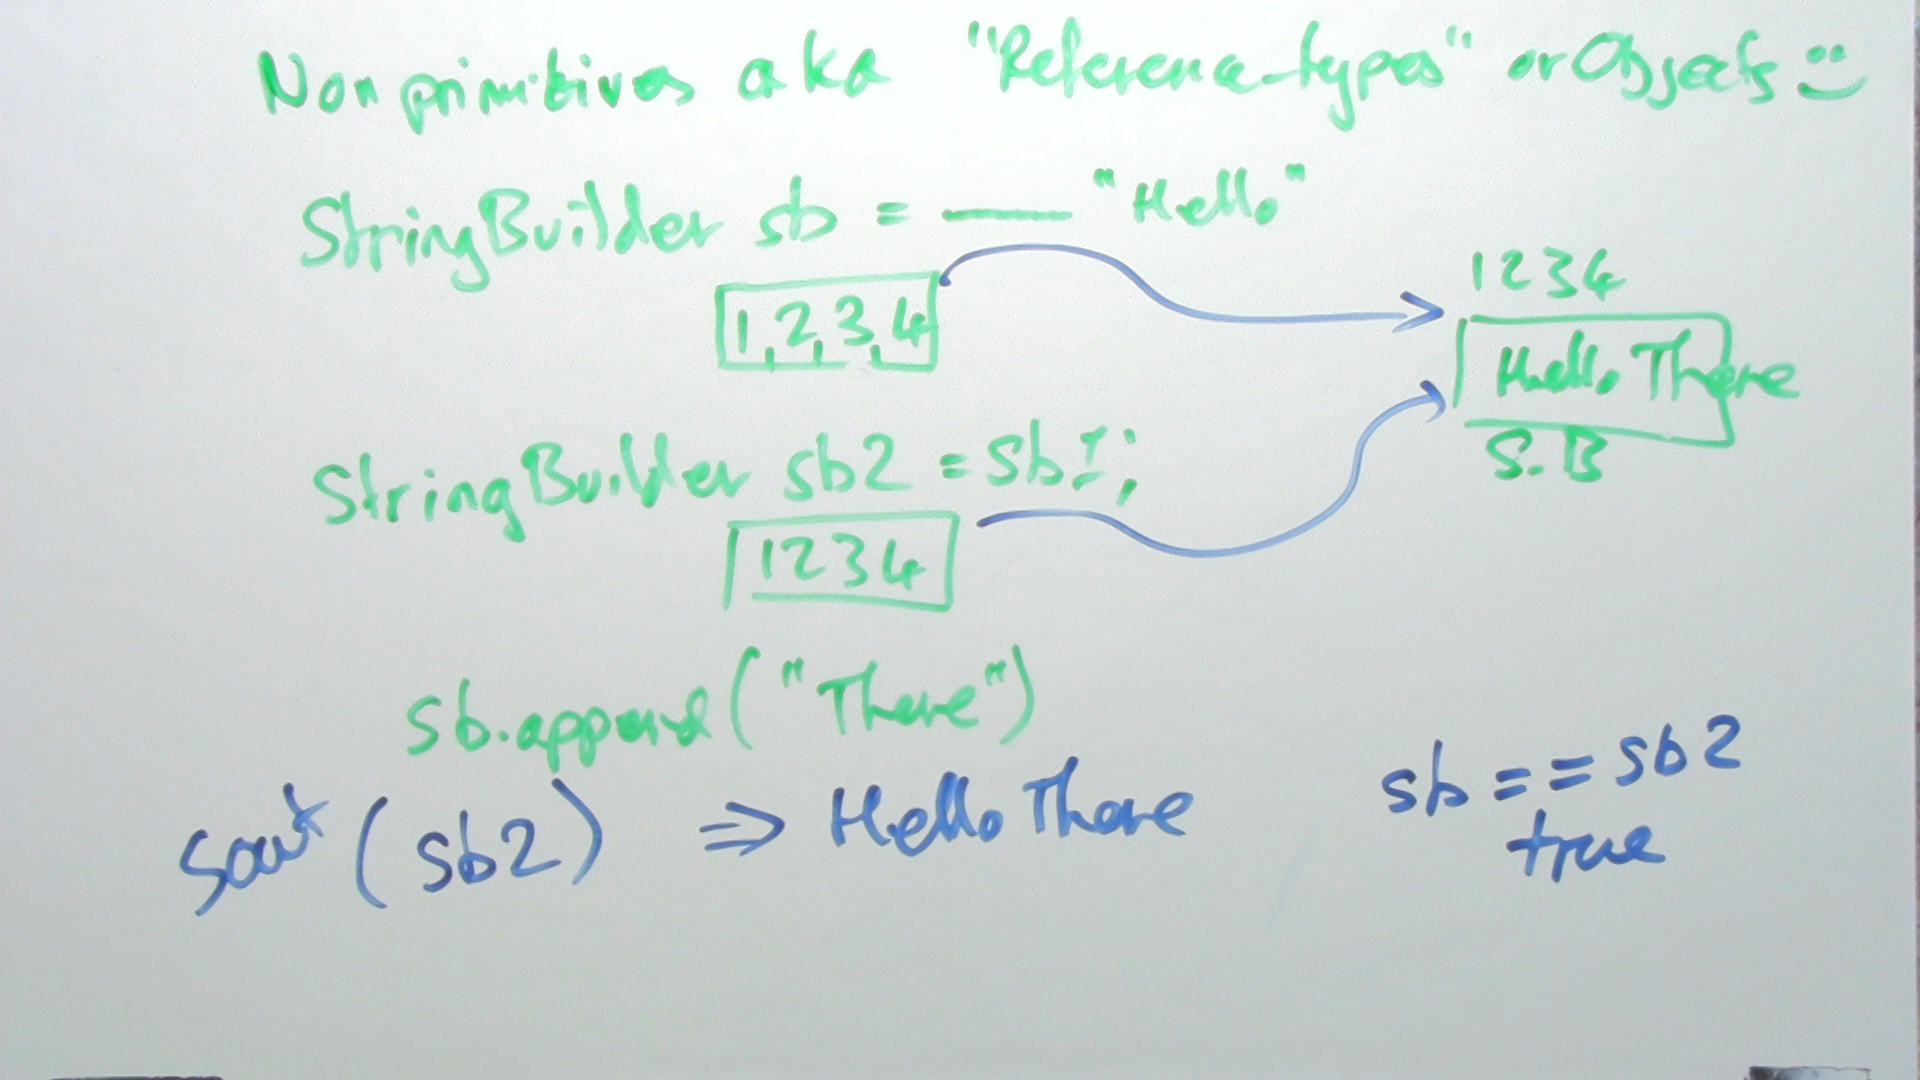 Nonprimitives aka "Reference-types" or Objects
StringBuilder sb = —— "Hello"
1,2,3,4
1234
Hello There
S.B
StringBuilder sb2 = sb1;
1234
sb.append("There")
Sout(sb2) ⇒ Hello There
sb == sb2
true